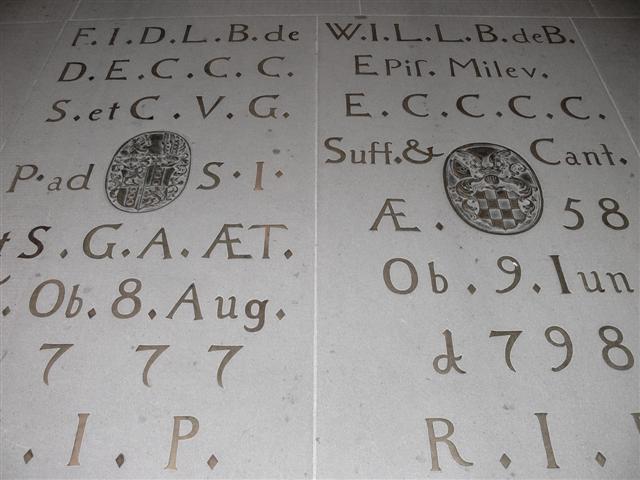 F.I.D.L.B.de
D.E.C.C.C.
S.etC.V.G.
P.ad S.I.
S.G.A.ÆT.
.Ob.8.Aug.
7 7 7
.I.P.
W.I.L.L.B.deB.
EPiſ. Milev.
E.C.C.C.C.
Suff.& Cant.
Æ. 58
Ob.9.Iun
d798
R.I.